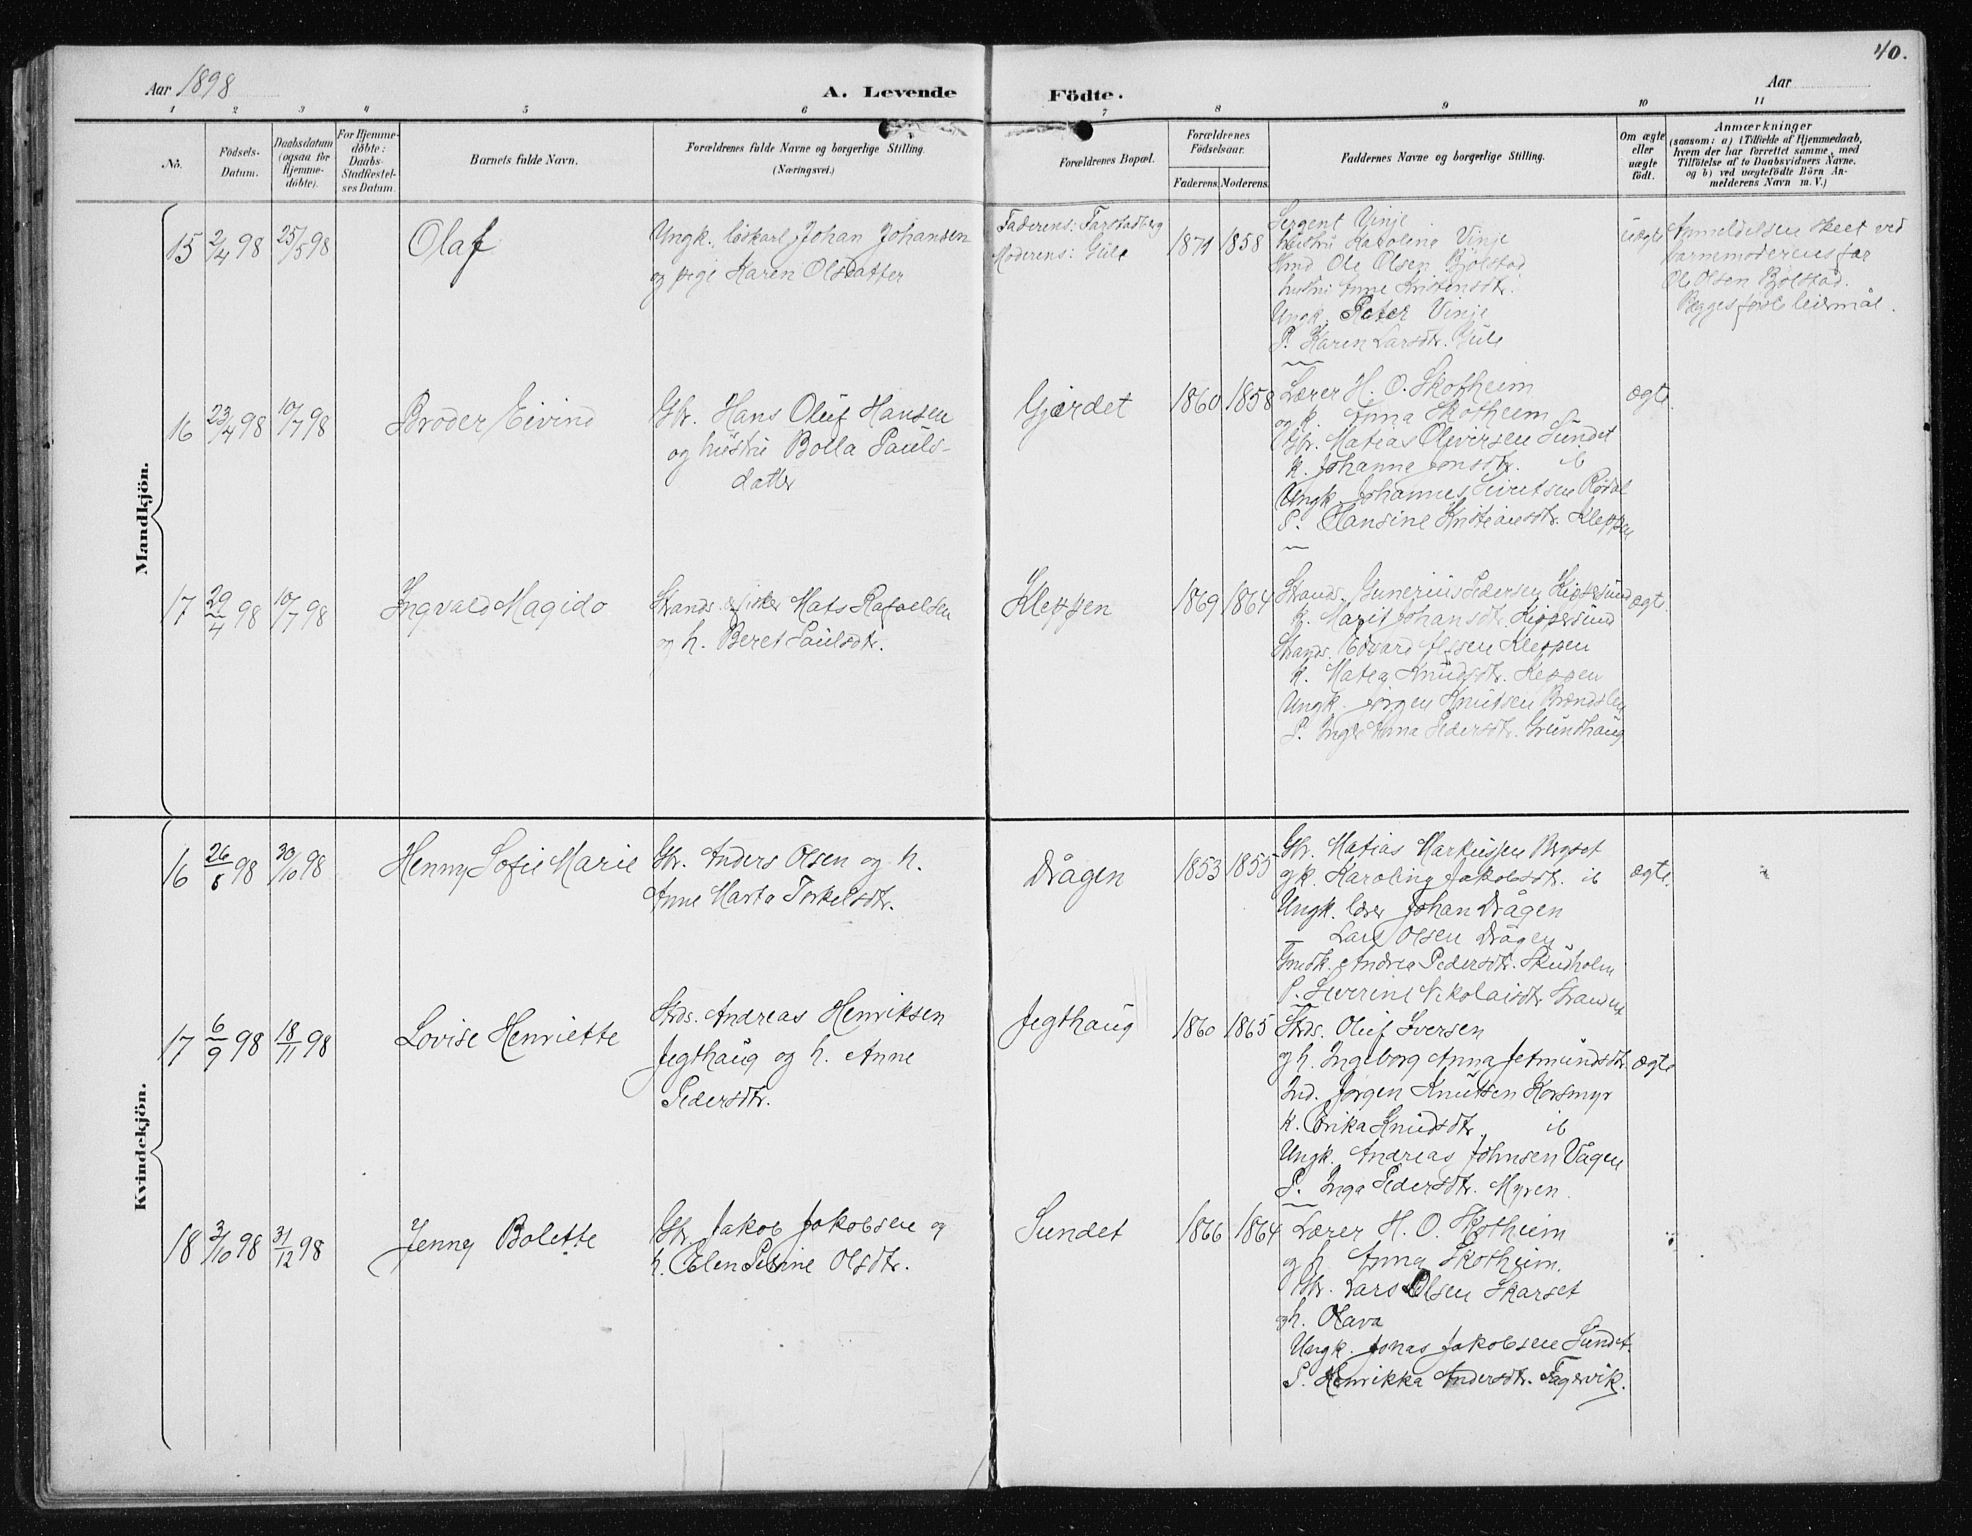 40.
Aar 1898
A. Levende Födte.
Aar
1 2 3 4 5 6 7 8 9 10 11
No.
Födsels-Datum.
Daabsdatum (ogsaa for Hjemmedöbte).
For Hjemmedöbte: Daabs-Stadfæstelses Datum.
Barnets fulde Navn.
Forældrenes fulde Navne og borgerlige Stilling (Næringsvei.)
Forældrenes Bopæl.
Forældrenes Födselsaar.
Faderens. Moderens.
Faddernes Navne og borgerlige Stilling.
Om ægte eller uægte födt.
Anmærkninger
(saasom: a) i Tilfælde af Hjemmedaab,
hvem der har forrettet samme, med
Tilföielse af to Daabsvidners Navne.
og b) ved uægtefödte Börn An-
melderens Navn m. V.)
Mandkjön.
15 2/4 98 25/5 98 Olaf
Ungk. løskarl Johan Johansen
og pige Karen Olsdatter
Faderens: Farstadberg
Moderens: Hile
1871 1858
Sergent Vinje
hustru Karoline Vinje
Ole Olsen Bjølstad
hustru Anne Kristensdtr.
Ungk. Peter Vinje
P. Karen Larsdtr. Hile
uægte
Anmeldelsen skeet ved
barnemoderens far
Ole Olsen Bjølstad.
Begges første leiermål.
16 23/4 98 10/7 98 Broder Eivind
Gbr. Hans Oluf Hansen
og hustru Bolla Pauls-
datter
Gjærdet
1860 1858
Lærer H. O. Skotheim
og k. Anna Skotheim
Gbr. Matias Oliversen Sundet
k. Johanne Jonsdtr. ib
Ungk. Johannes Sivertsen Rødal
P. Hansine Kristiansdtr. Kleppen
ægte
17 29/4 98 10/7 98 Ingvald Magido
Strands. & fisker Mats Rafaelsen
og h. Beret Paulsdtr.
Kleppen
1869 1864
Strands. Gunerius Pedersen Kippersund
k. Marit Johansdtr. Kippersund
Strands. Edvard Olsen Kleppen
k. Matea Knudsdtr. Kleppen
Ungk. Jørgen Knutsen Brændslen
P. Inger Anna Pedersdtr. Grundhaug
ægte.
Kvindekjön.
16 26/8 98 30/10 98 Henny Sofie Marie
Gbr. Anders Olsen og h.
Anne Marta Torkelsdtr.
Drågen
1853 1855
Gbr. Matias Markussen Bergset
og k. Karoline Jakobsdtr. ib
Ungk. lærer Johan Drågen
— Lars Olsen Drågen
Andrea Pedersdtr. Skudholm
P. Severine Nikolaisdtr
ægte.
17 6/9 98 18/11 98 Lovise Henriette
Strds. Andreas Henriksen
Jegthaug og h. Anne
Pedersdtr.
Jegthaug
1860 1865
Strds. Oluf Iversen
og h. Ingeborg Anna Jetmundsdtr.
Ind. Jørgen Knutsen Korsmyr
k. Erika Knudsdtr. ib
Ungk. Andreas Johnsen Vågen
P. Inga Pedersdtr. Myren.
ægte
18 3/10 98 31/12 98 Jenny Bolette
Gbr. Jakob Jakobsen og
h. Elen Petrine Olsdtr.
Sundet
1866 1864
Lærer H. O. Skotheim
og h Anna Skotheim.
Gbr. Lars Olsen Skarset
og h. Olava
Ungk. Jonas Jakobsen Sundet.
P. Henrikka Andersdtr. Fagervik.